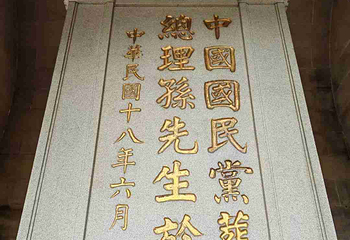 中國國民黨葬
總理孫先生於
中華民國十八年六月